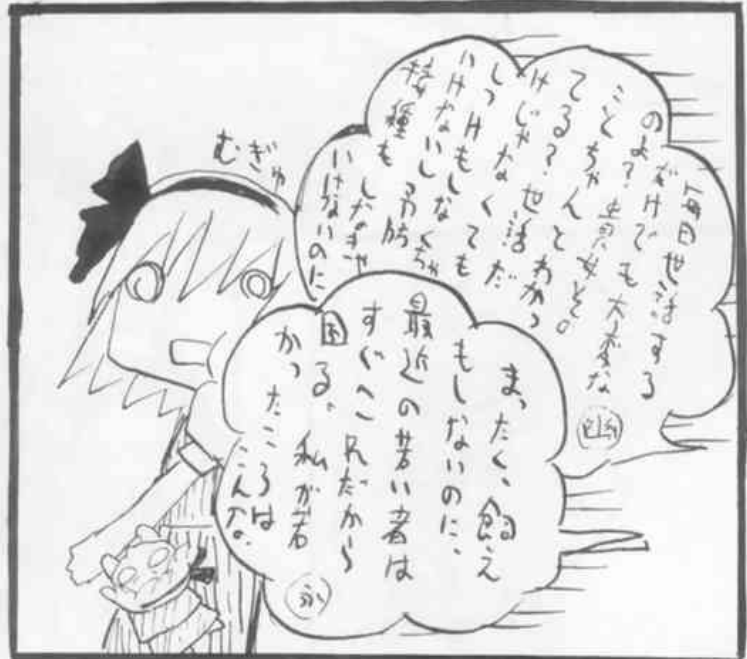 毎日世話する
だけでも大変な
のよ?貴女その
ことちゃんとわかっ
てる?世話だ
けじゃなくても
しつけもしなくちゃ
いけないし予防
接種もしなきゃ
いけないのに
幽
むぎゅ
まったく、飼え
もしないのに、
最近の若い者は
すぐこれだから
困る。私が若
かったころは
こんな
永